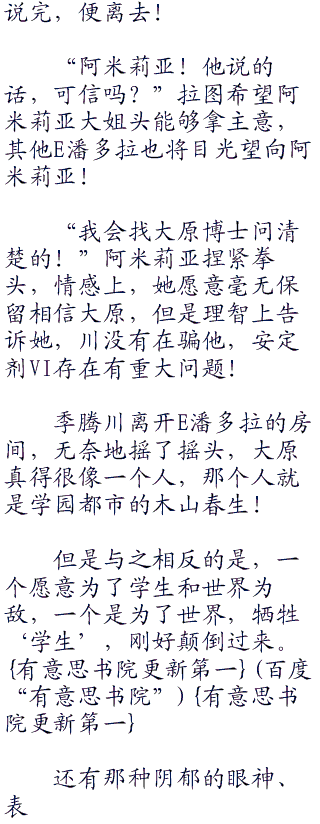 说完，便离去！
“阿米莉亚！他说的
话，可信吗？”拉图希望阿
米莉亚大姐头能够拿主意，
其他E潘多拉也将目光望向阿
米莉亚！
“我会找大原博士问清
楚的！”阿米莉亚捏紧拳
头，情感上，她愿意毫无保
留相信大原，但是理智上告
诉她，川没有在骗他，安定
剂VI存在有重大问题！
季腾川离开E潘多拉的房
间，无奈地摇了摇头，大原
真得很像一个人，那个人就
是学园都市的木山春生！
但是与之相反的是，一
个愿意为了学生和世界为
敌，一个是为了世界，牺牲
‘学生’，刚好颠倒过来。
{有意思书院更新第一}(百度
“有意思书院”){有意思书
院更新第一}
还有那种阴郁的眼神、
表